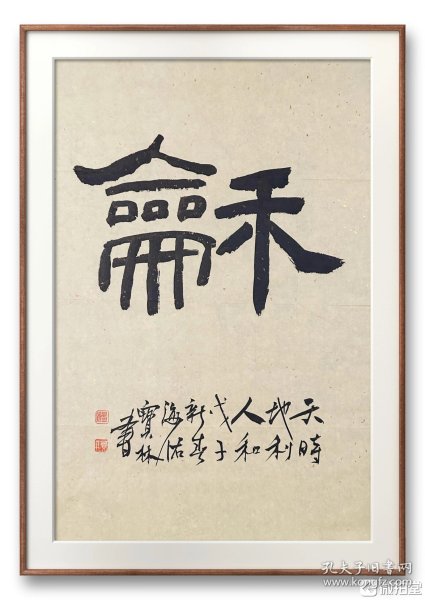 龢
天時
地利
人和
戊子
新春
海沽
寶林
書
孔夫子旧书网
www.kongfz.com
微拍堂